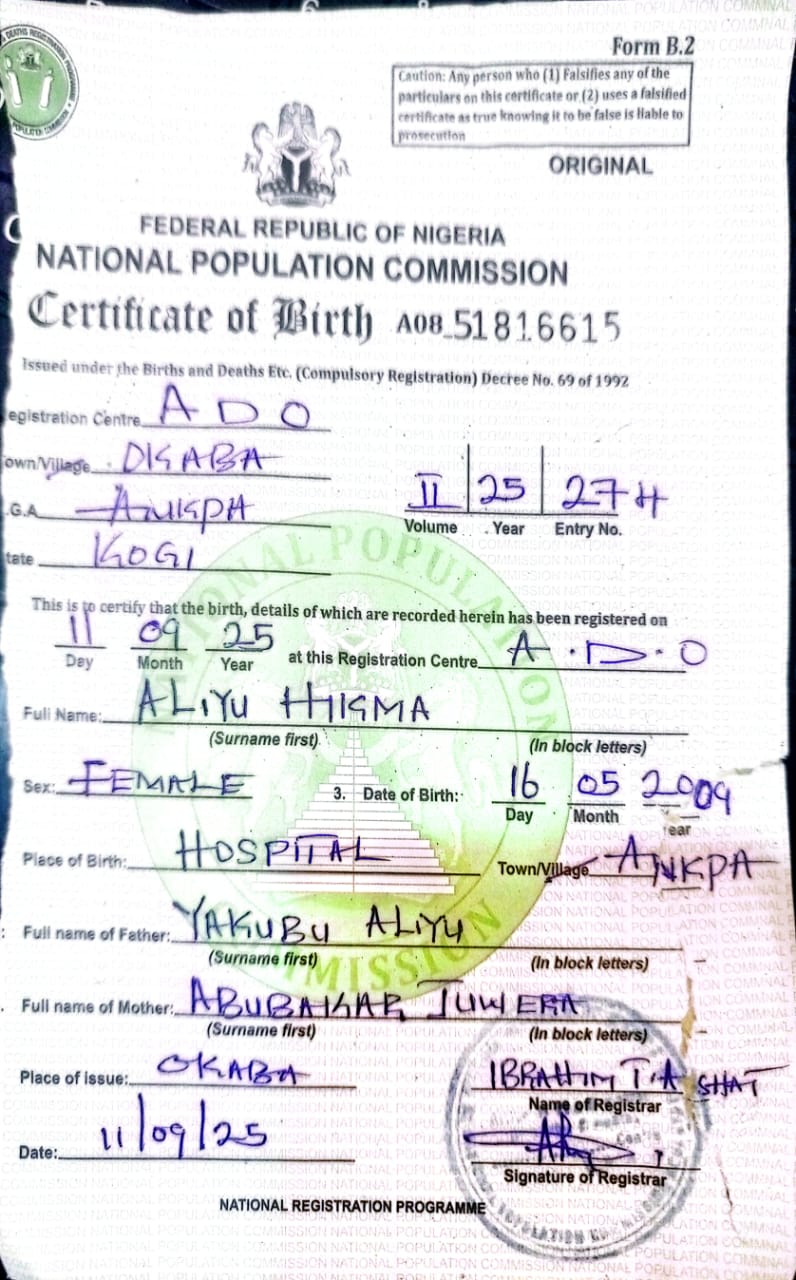 Form B.2
Caution: Any person who (1) Falsifies any of the
particulars on this certificate or (2) uses a falsified
certificate as true knowing it to be false is liable to
prosecution
ORIGINAL
FEDERAL REPUBLIC OF NIGERIA
NATIONAL POPULATION COMMISSION
Certificate of Birth A08 51816615
Issued under the Births and Deaths Etc. (Compulsory Registration) Decree No. 69 of 1992
egistration Centre ADO
own/Village OKABA
.G.A ANKPA
II 25 274
Volume Year Entry No.
tate KOGI
This is to certify that the birth, details of which are recorded herein has been registered on
11 09 25 at this Registration Centre A.D.O
Day Month Year
Full Name: ALIYU HIKMA
(Surname first) (In block letters)
Sex: FEMALE 3. Date of Birth: 16 05 2009
Day Month Year
Place of Birth: HOSPITAL Town/Village ANKPA
: Full name of Father: YAKUBU ALIYU
(Surname first) (In block letters)
. Full name of Mother: ABUBAKAR JUWERA
(Surname first) (In block letters)
Place of issue: OKABA IBRAHIM T.A SHAT
Name of Registrar
Date: 11/09/25
Signature of Registrar
NATIONAL REGISTRATION PROGRAMME
NATIONAL POPULATION COMMISSION